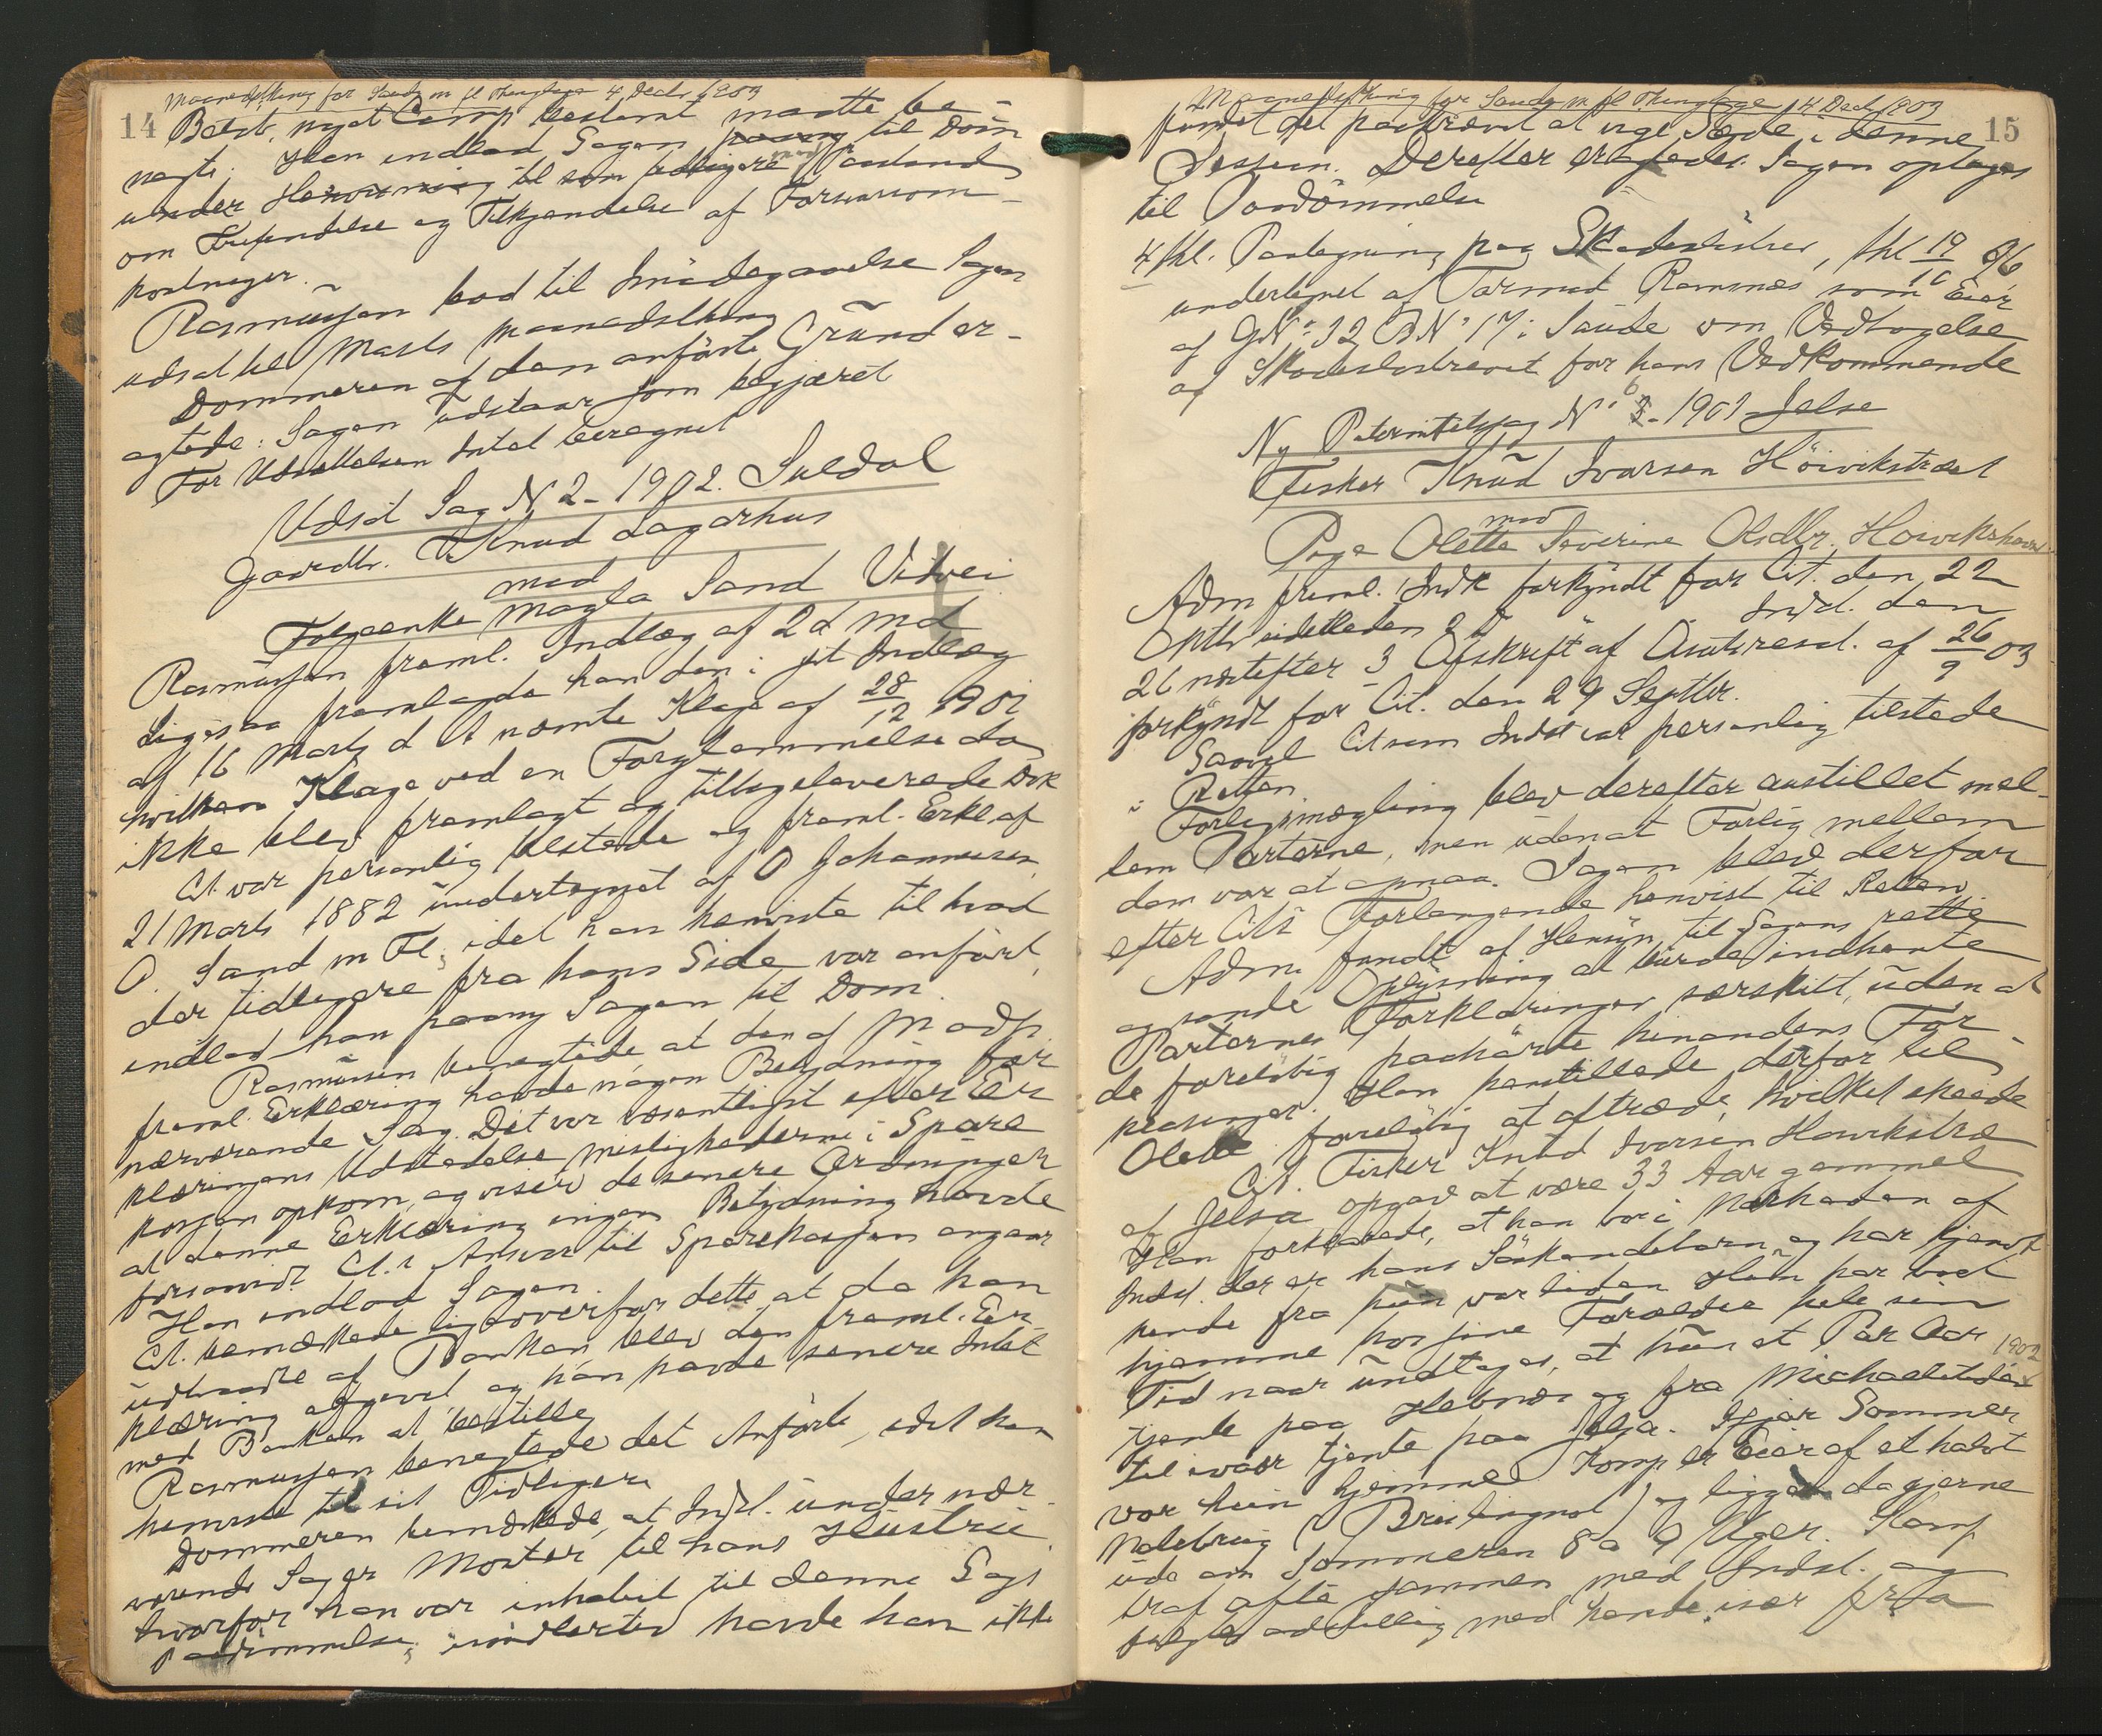 14
Maanedsthing for Saude m fl Thinglage 4 Decbr 1903
Beløb, noget Comp bestemt maatte be-
negte. Han indlod Sagen til Dom
under Henvisning til sin tidligere Paastand
om Frifindelse og Tilkjendelse af Forsvarsom-
kostninger.
Rasmussen bad til Imødegaaelse Sagen
udsat til Marts Maanedsthing
Dommeren af den anførte Grund er-
agtede: Sagen udstaar som begjæret
For Udsættelsen Intet beregnet
Udsat Sag N 2 - 1902. Suldal
Gaardbr. Knud Lagarhus
mod
Følgeenke Magla Sand Vidvei
Rasmussen freml. Indlæg af 2d Md
Ligesaa fremlagde han den i sit Indlæg
af 16 Marts d A nævnte Klage af 28/12 1901
hvilken Klage ved en Forglemmelse da
ikke blev fremlagt og tilbageleverede Dok
Ct var personlig tilstede og freml. Erkl af
21 Marts 1882 undertegnet af O Johannesen
O. Sand m Fl; idet han henviste til hvad
der tidligere fra hans Side var anført,
indlod han paany Sagen til Dom.
Rasmussen benegtede, at den af Modp.
freml. Erklæring havde nogen Betydning for
nærværende Sag. Det var væsentligst efter Er-
klæringens Udstedelse Mislighederne i Spare
kassen opkom, og viser de senere Ordninger
at denne Erklæring ingen Betydning havde
forsaavidt Ct.s Ansvar til Sparekassen angaar
Han indlod Sagen.
Ct. bemærkede ligeoverfor dette at da han
udtraadte af Banken blev den freml. Er-
klæring afgivet og han havde senere Intet
med Banken at bestille
Rasmussen benegtede det Anførte, idet han
henviste til sit Tidligere
Dommeren bemærkede, at Indst. under nær-
værende Sag er Moster til hans Hustru
hvorfor han var inhabil til denne Sags
Paadømmelse; imidlertid havde han ikke
15
Maanedsthing for Saude m fl Thinglage 4 Decb 1903
fundet det paakrævet at vige Sæde i denne
Session. Derefter eragtedes: Sagen optages
til Paadømmelse
4 fhl. Paategning paa Skadesløsbrev, thl 19/10 96
undertegnet af Tormod Ramnæs som Eier
af GN: 32 BN 17 i Saude om Vedtagelse
af Skadesløsbrevet for hans Vedkommende
Ny Paternitetssag N: 6 - 1901 Jelse
Fisker Knud Ivarsen Høivikstræet
mod
Pige Olette Severine Olsdtr.
Adm freml. 1 Indk forkyndt for Cit. den 22
Oktbr sidstleden 2 Indst. den
26 næstefter 3 Afskrift af Amtsresol. af 26/9 03
forkyndt for Cit. den 29 Septbr.
Saavel Cit som Indst var personlig tilstede
i Retten
Forligsmægling blev derefter anstillet mel-
lem Parterne, men uden at Forlig mellem
dem var at opnaa. Sagen blev derfor
efter Cits Forlangende henvist til Retten
Adm. fandt af Hensyn til Sagens rette
og sande Oplysning at burde indhente
Parternes Forklaringer særskilt, uden at
de foreløbig paahørte hinandens For-
klaringer. Han henstillede derfor til
Olette foreløbig at aftræde, hvilket skeede
Cit. Fisker Knud Ivarsen
af Jelse opgav at være 33 Aar gammel
Han forklarede, at han bor i Nærheden af
Indst. der er hans Søskendebarn og har kjendt
hende fra hun var liden. Hun har været
hjemme hos sine Forældre hele sin
Tid naar undtages, at hun et Par Aar
tjente paa Hebnæs og fra Michaelistider 1902
til ivaar tjente paa Jelsa. Ifjor Sommer
var hun hjemme. Komp er Eier af et halvt
Notebrug og ligger da gjerne
ude om Sommeren 8 a 9 Uger. Komp
traf ofte sammen med Indst. og
med hende, især fra